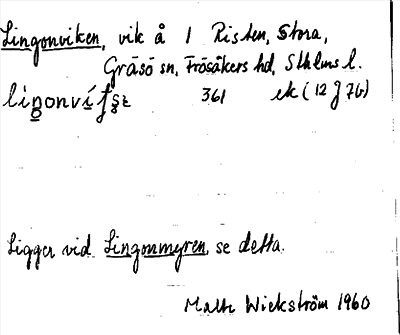 Lingonviken, vik å 1 Risten, Stora,
Gräsö sn, Frösåkers hd, Sthlms l.
361 ek (12 J 7b)
Ligger vid Lingonmyren, se detta.
Wickström 1960